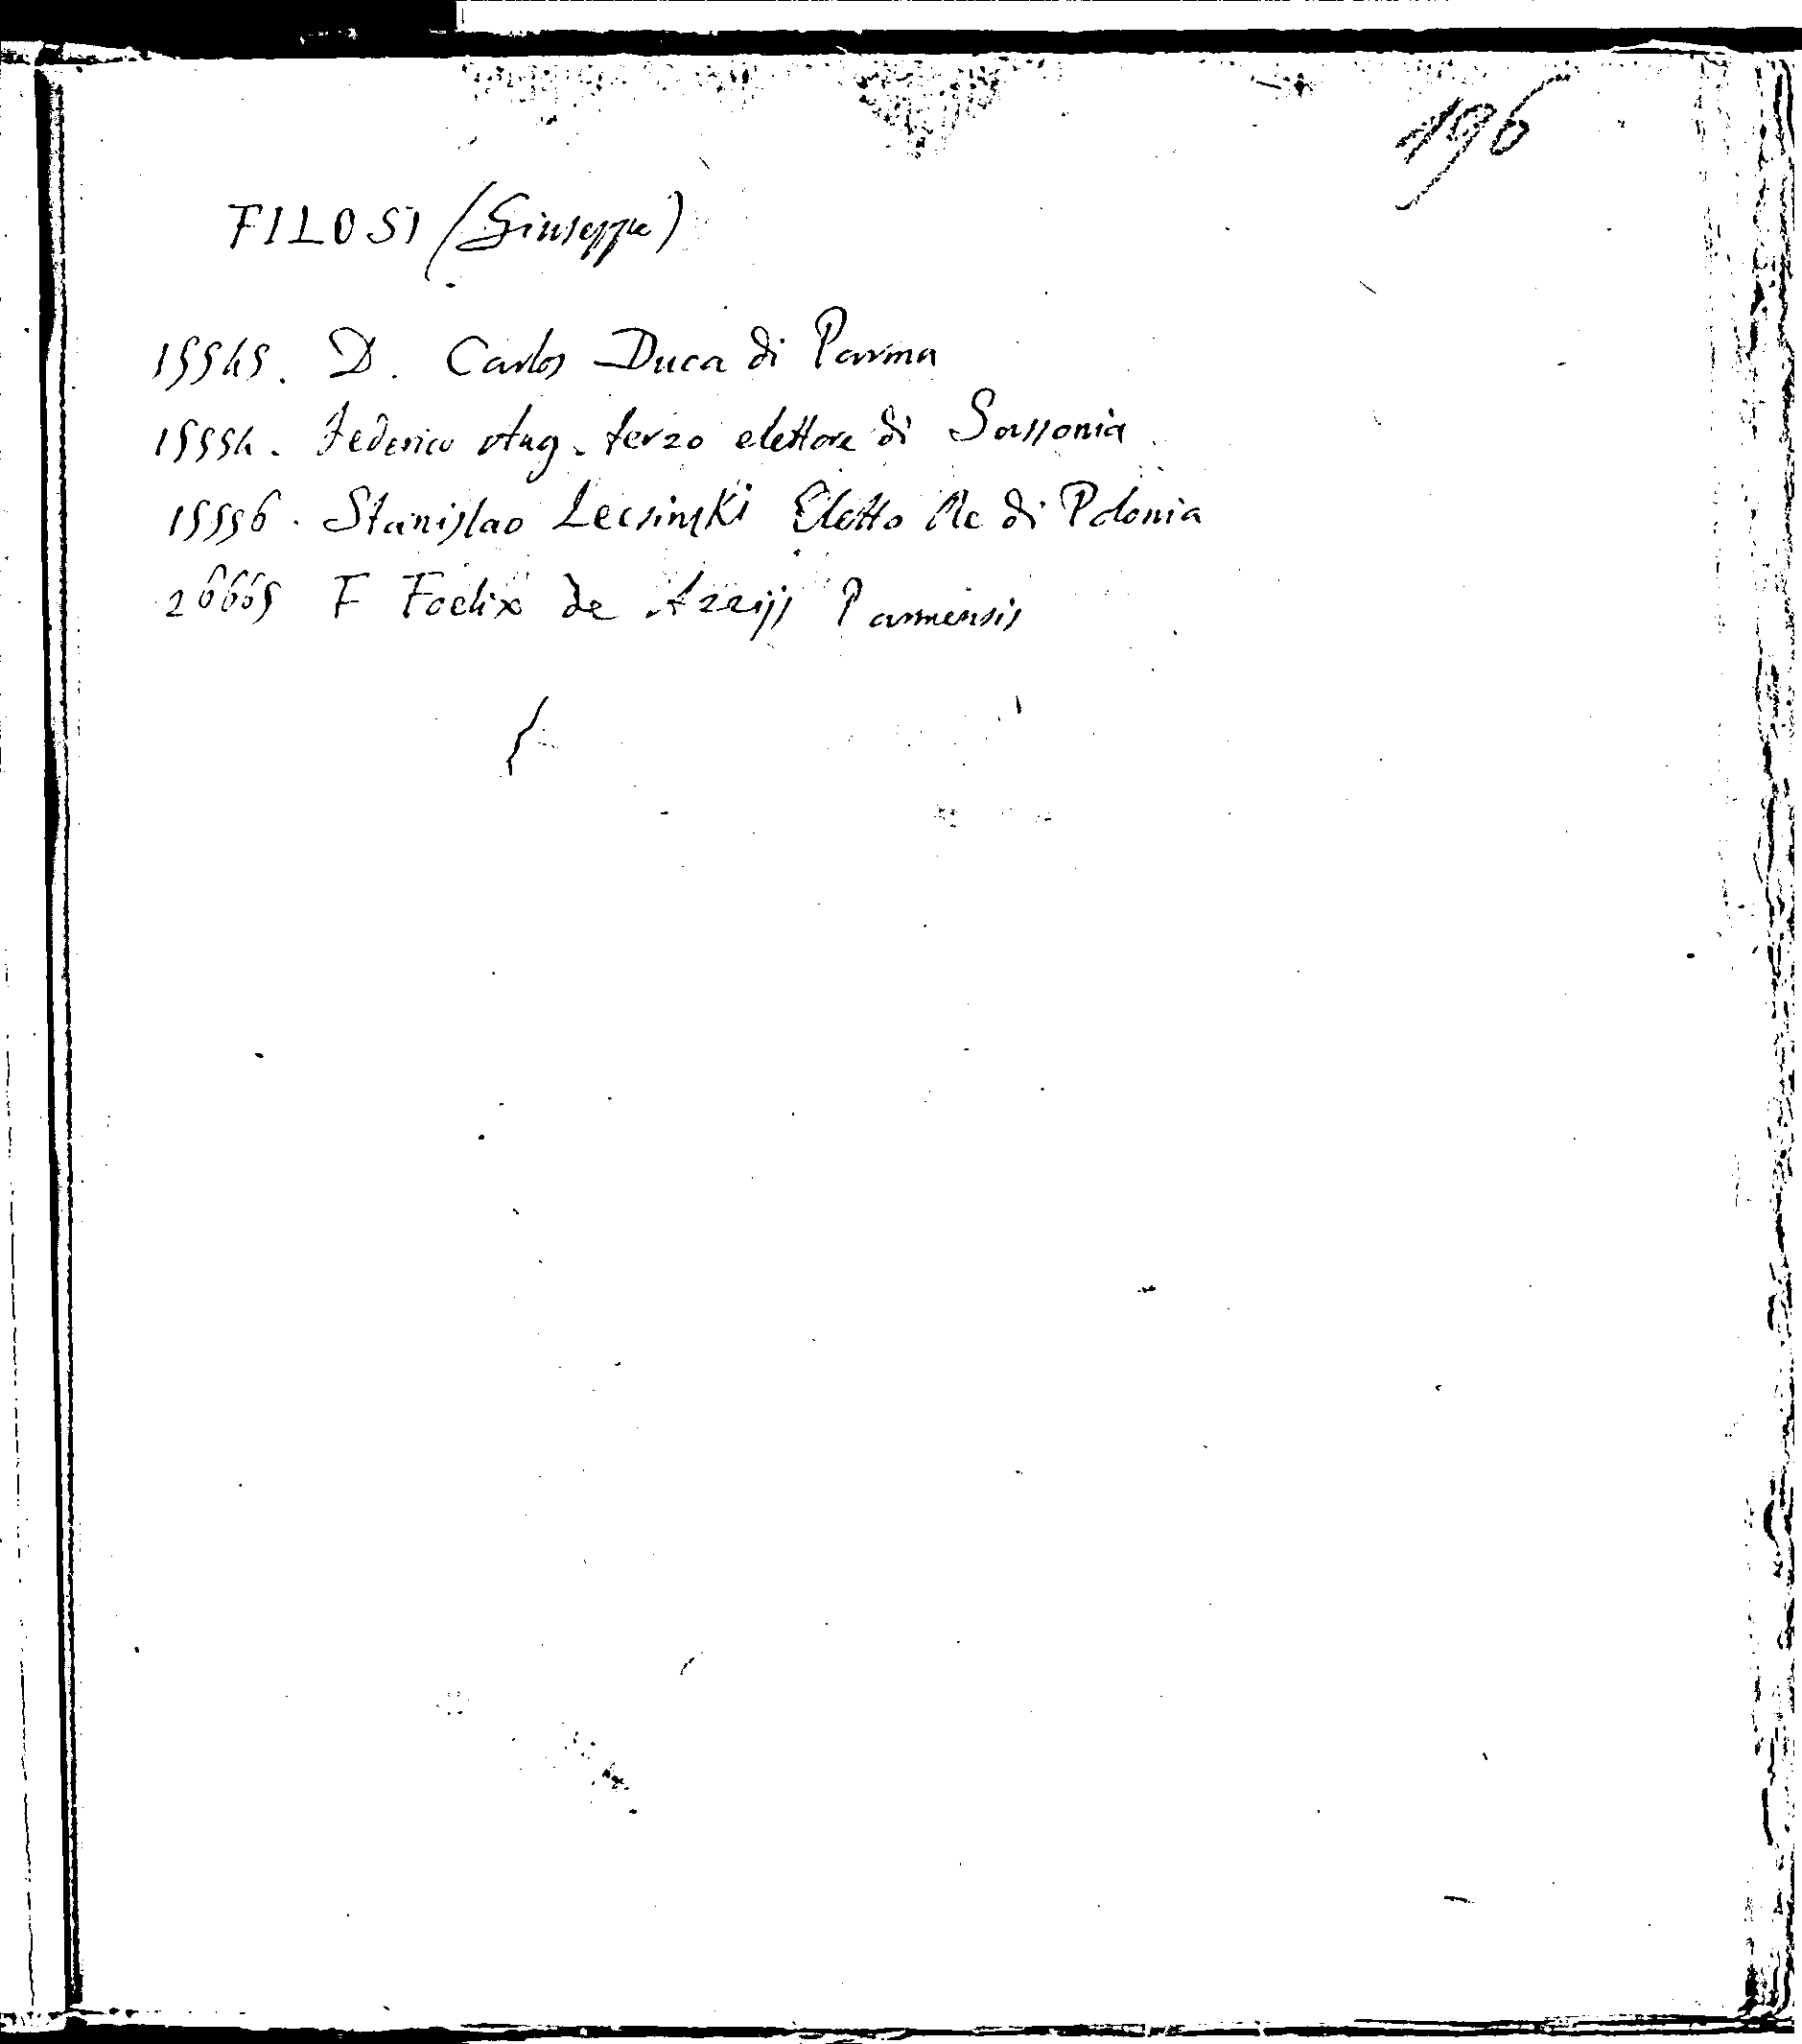 196
FILOSI (Giuseppe)
15545. D. Carlos Duca di Parma
15554. Federico Aug. terzo elettore di Sassonia
15556. Stanislao Lecsinski Eletto Re di Polonia
26665 F Foelix de Azzijs Parmensis